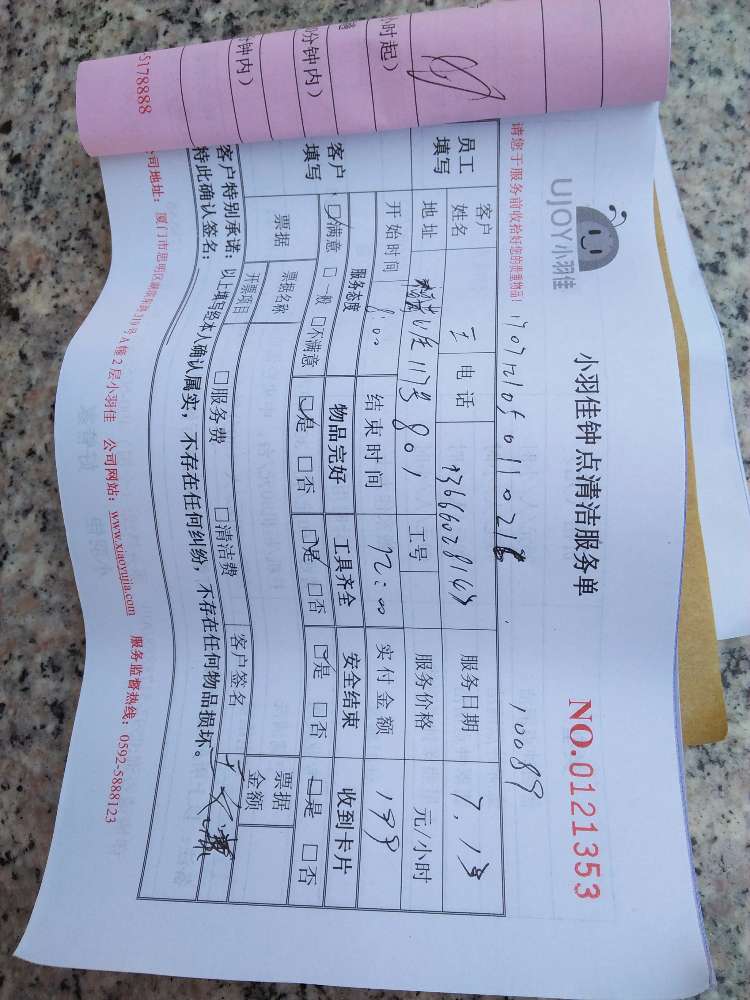 UJOY小羽佳
小羽佳钟点清洁服务单
NO.0121353
请您于服务前收拾好您的贵重物品!
10089
员工填写
客户姓名 王 电话 服务日期 7.13
地址 117号801 工号 服务价格 元/小时
开始时间 8:00 结束时间 12:00 实付金额 199
客户填写
服务态度 物品完好 工具齐全 安全结束 收到卡片
☑满意 □一般 □不满意 ☑是 □否 ☑是 □否 ☑是 □否 ☑是 □否
票据 票据名称 票据金额
开票项目 □服务费 □清洁费 客户签名
客户特别承诺：以上填写经本人确认属实，不存在任何纠纷，不存在任何物品损坏。
特此确认签名：
公司网站：www.xiaoyujia.com 服务监督热线：0592-5888123
小时起）
0分钟内）
分钟内）
5178888